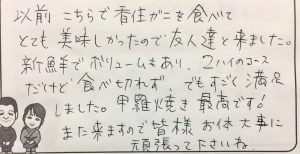 以前 こちらで香住ガニを食べて
とても 美味しかったので友人達と来ました。
新鮮でボリュームもあり、2ハイのコース
だけど 食べ切れず、でもすごく満足
しました。甲羅焼き 最高です!
また来ますので皆様 お体大事に
頑張って下さいね。